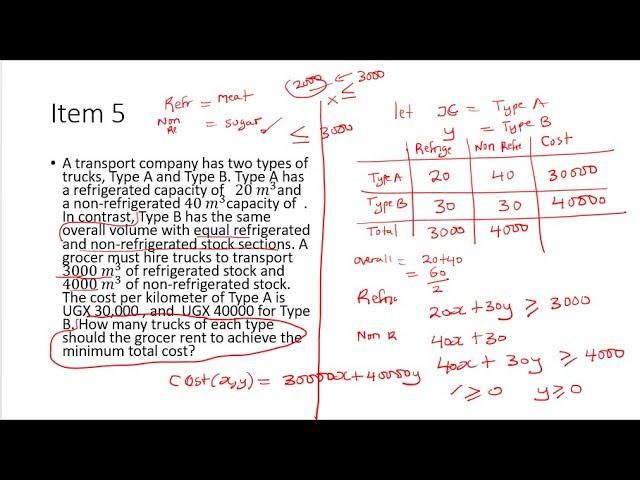 Item 5
• A transport company has two types of
trucks, Type A and Type B. Type A has
a refrigerated capacity of 20 m³and
a non-refrigerated 40 m³capacity of .
In contrast, Type B has the same
overall volume with equal refrigerated
and non-refrigerated stock sections. A
grocer must hire trucks to transport
3000 m³ of refrigerated stock and
4000 m³ of non-refrigerated stock.
The cost per kilometer of Type A is
UGX 30,000 , and UGX 40000 for Type
B. How many trucks of each type
should the grocer rent to achieve the
minimum total cost?
Refr = meat
Non
Re = sugar ✓
≤ 3000
2000 ← 3000
x ≤
let x = Type A
y = Type B
Refrige Non Refre Cost
Type A 20 40 30000
Type B 30 30 40000
Total 3000 4000
overall = 20+40
= 60
2
Refric
20x + 30y ≥ 3000
Non R 40x + 30
40x + 30y ≥ 4000
≥ 0 y ≥ 0
Cost(x,y) = 300000x + 40000y